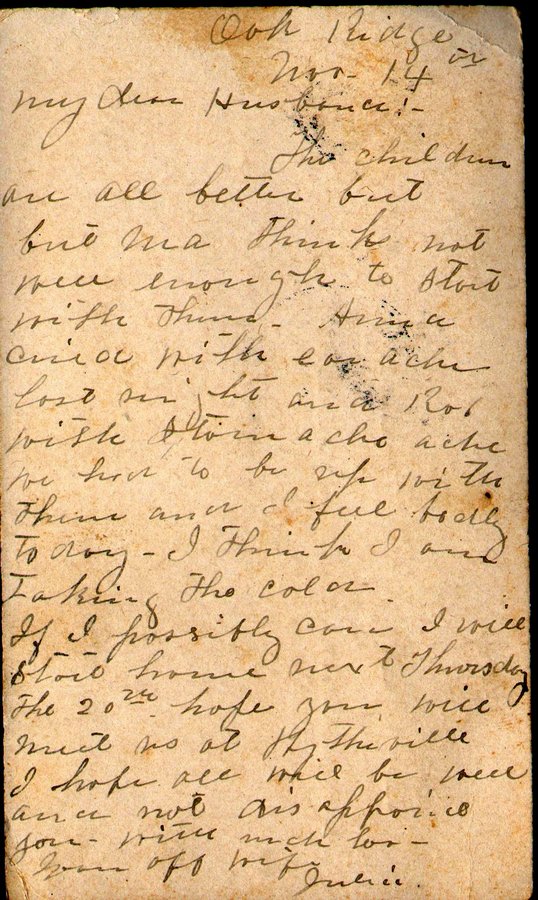 Oak Ridge
Nov. 14
My dear Husband:-
The children
are all better but
but Ma think not
well enough to start
with them. Anna
cried with ear ache
last night and Rob
with stomache ache
we had to be up with
them and I feel badly
today - I think I am
taking the cold.
If I possibly can I will
start home next Thursday
the 20th hope you will
meet us at Wytheville
I hope all will be well
and not disappoint
you - with much lov-
off wife
Julia.